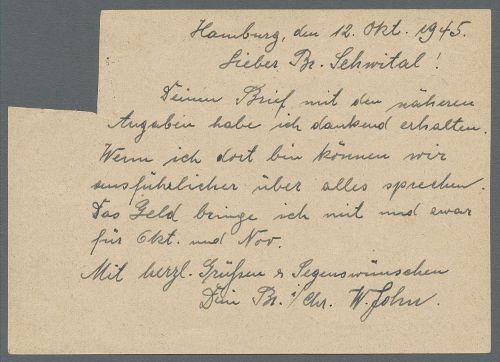 Hamburg, den 12. Okt. 1945.
Lieber Br. Schwital!
Deinen Brief mit den näheren
Angaben habe ich dankend erhalten.
Wenn ich dort bin können wir
ausführlicher über alles sprechen.
Das Geld bringe ich mit und zwar
für Okt. und Nov.
Mit herzl. Grüßen & Segenswünschen
Dein Br. i/Chr. W. John.